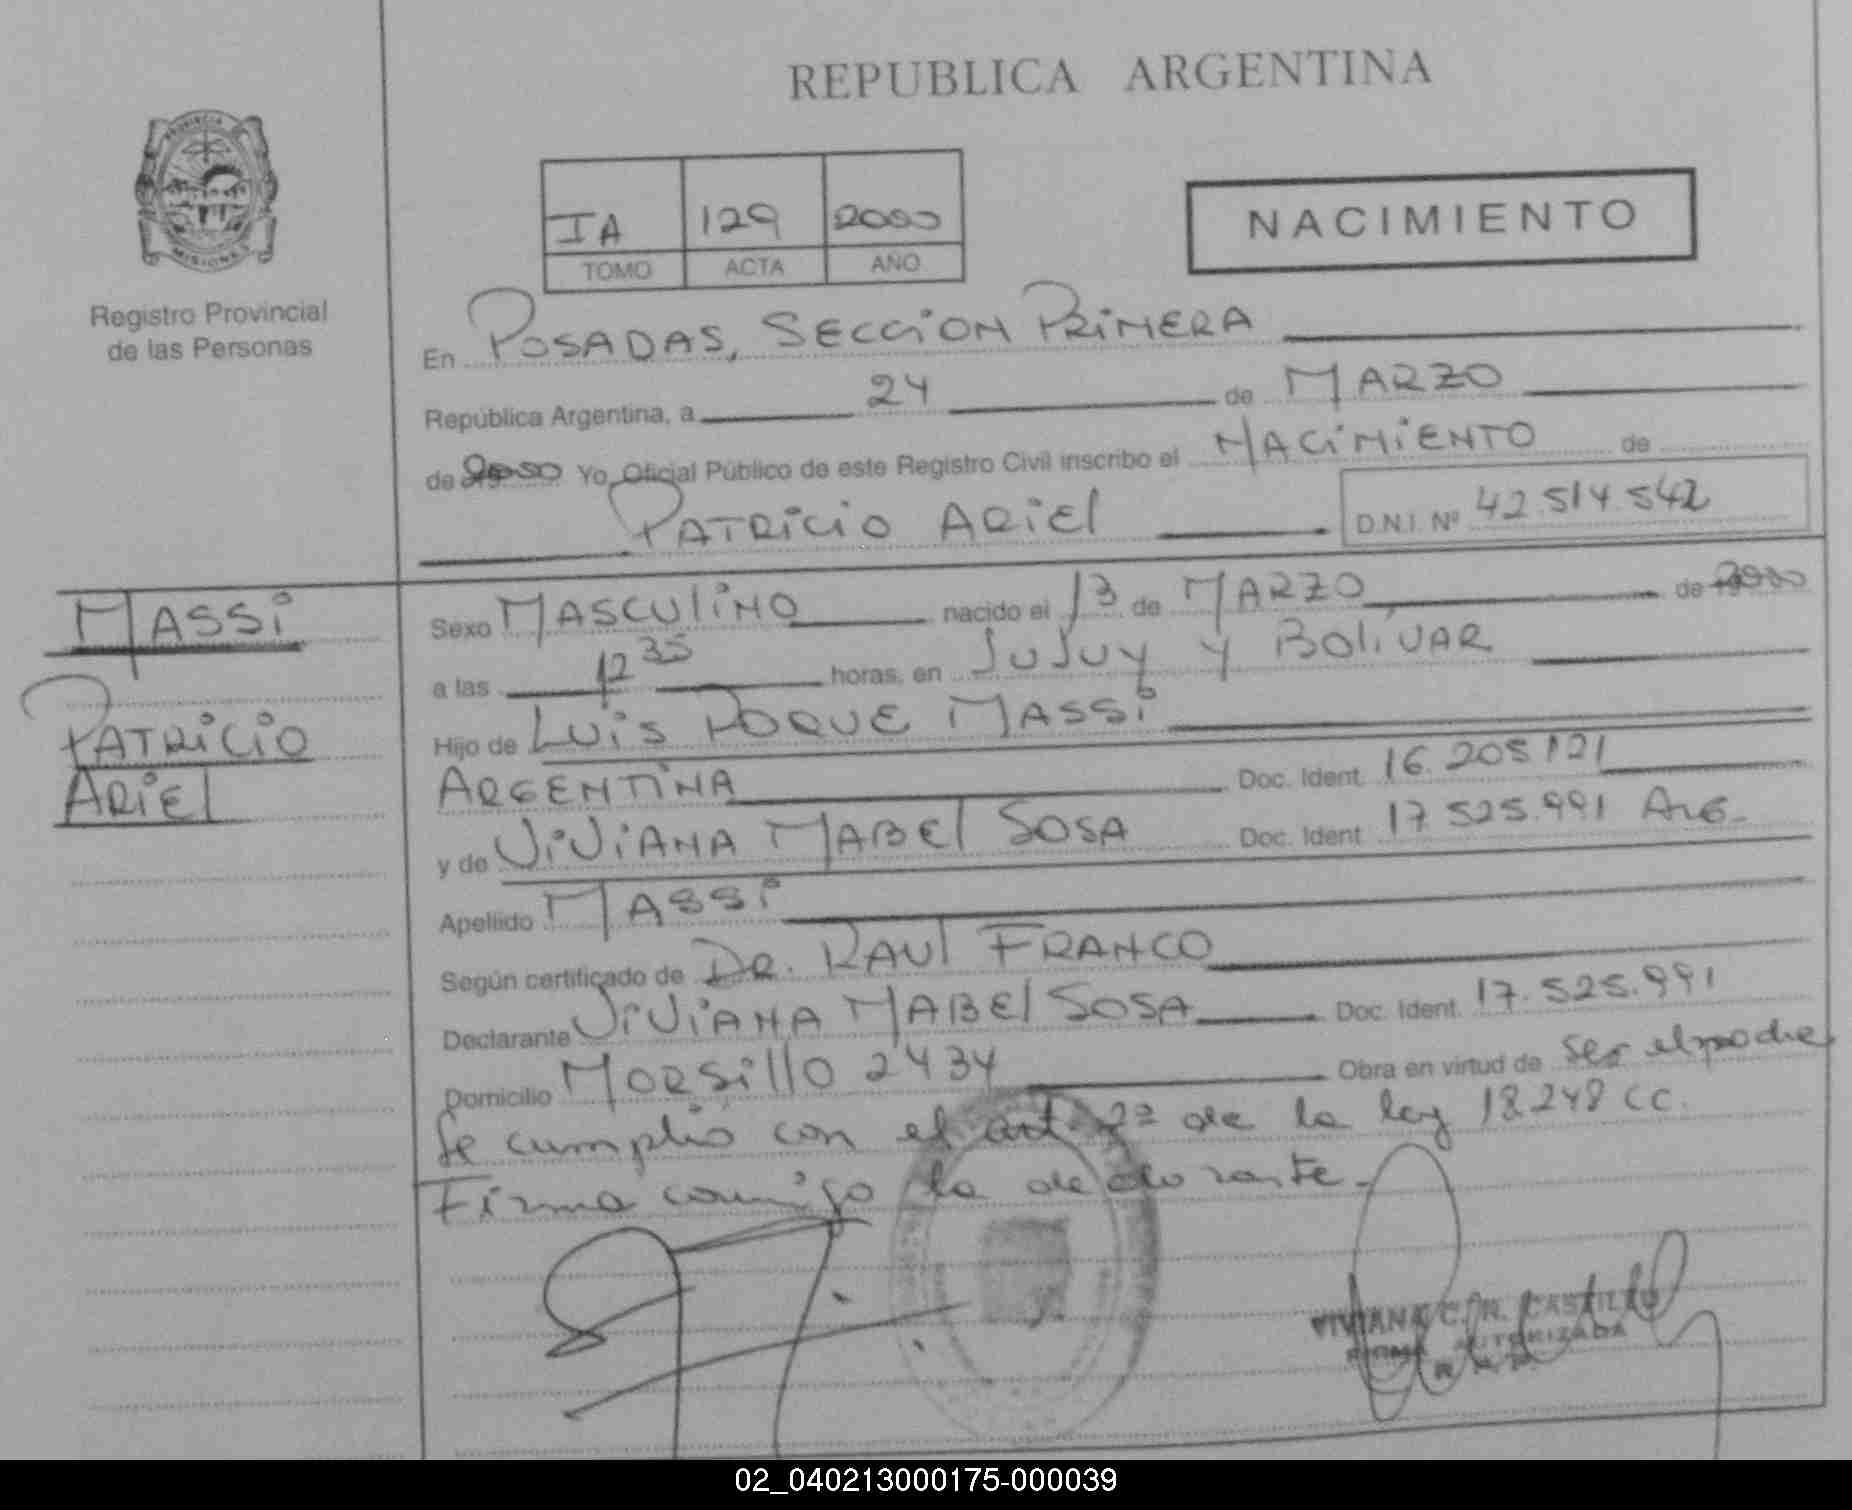 REPUBLICA ARGENTINA
PROVINCIA
MISIONES
Registro Provincial
de las Personas
IA 129 2000
TOMO ACTA AÑO
NACIMIENTO
En POSADAS, SECCION PRIMERA
República Argentina, a 24 de MARZO
de 2000 Yo, Oficial Público de este Registro Civil inscribo el NACIMIENTO de
PATRICIO ARIEL D.N.I. Nº 42.514.542
MASSI
PATRICIO
ARIEL
Sexo MASCULINO nacido el 13 de MARZO de 2000
a las 12 35 horas, en JUJUY Y BOLIVAR
Hijo de LUIS ROQUE MASSI
ARGENTINA Doc. Ident. 16.205.121
y de VIVIANA MABEL SOSA Doc. Ident 17.525.991 ARG.
Apellido MASSI
Según certificado de DR. RAUL FRANCO
Declarante VIVIANA MABEL SOSA Doc. Ident. 17.525.991
Domicilio MORSILLO 2434 Obra en virtud de ser el madre
Se cumplió con el art. 2º de la ley 18248 CC.
Firma conmigo la declarante.-
VIVIANA C. R. CASTILLO
FIRMA AUTORIZADA
02_040213000175-000039